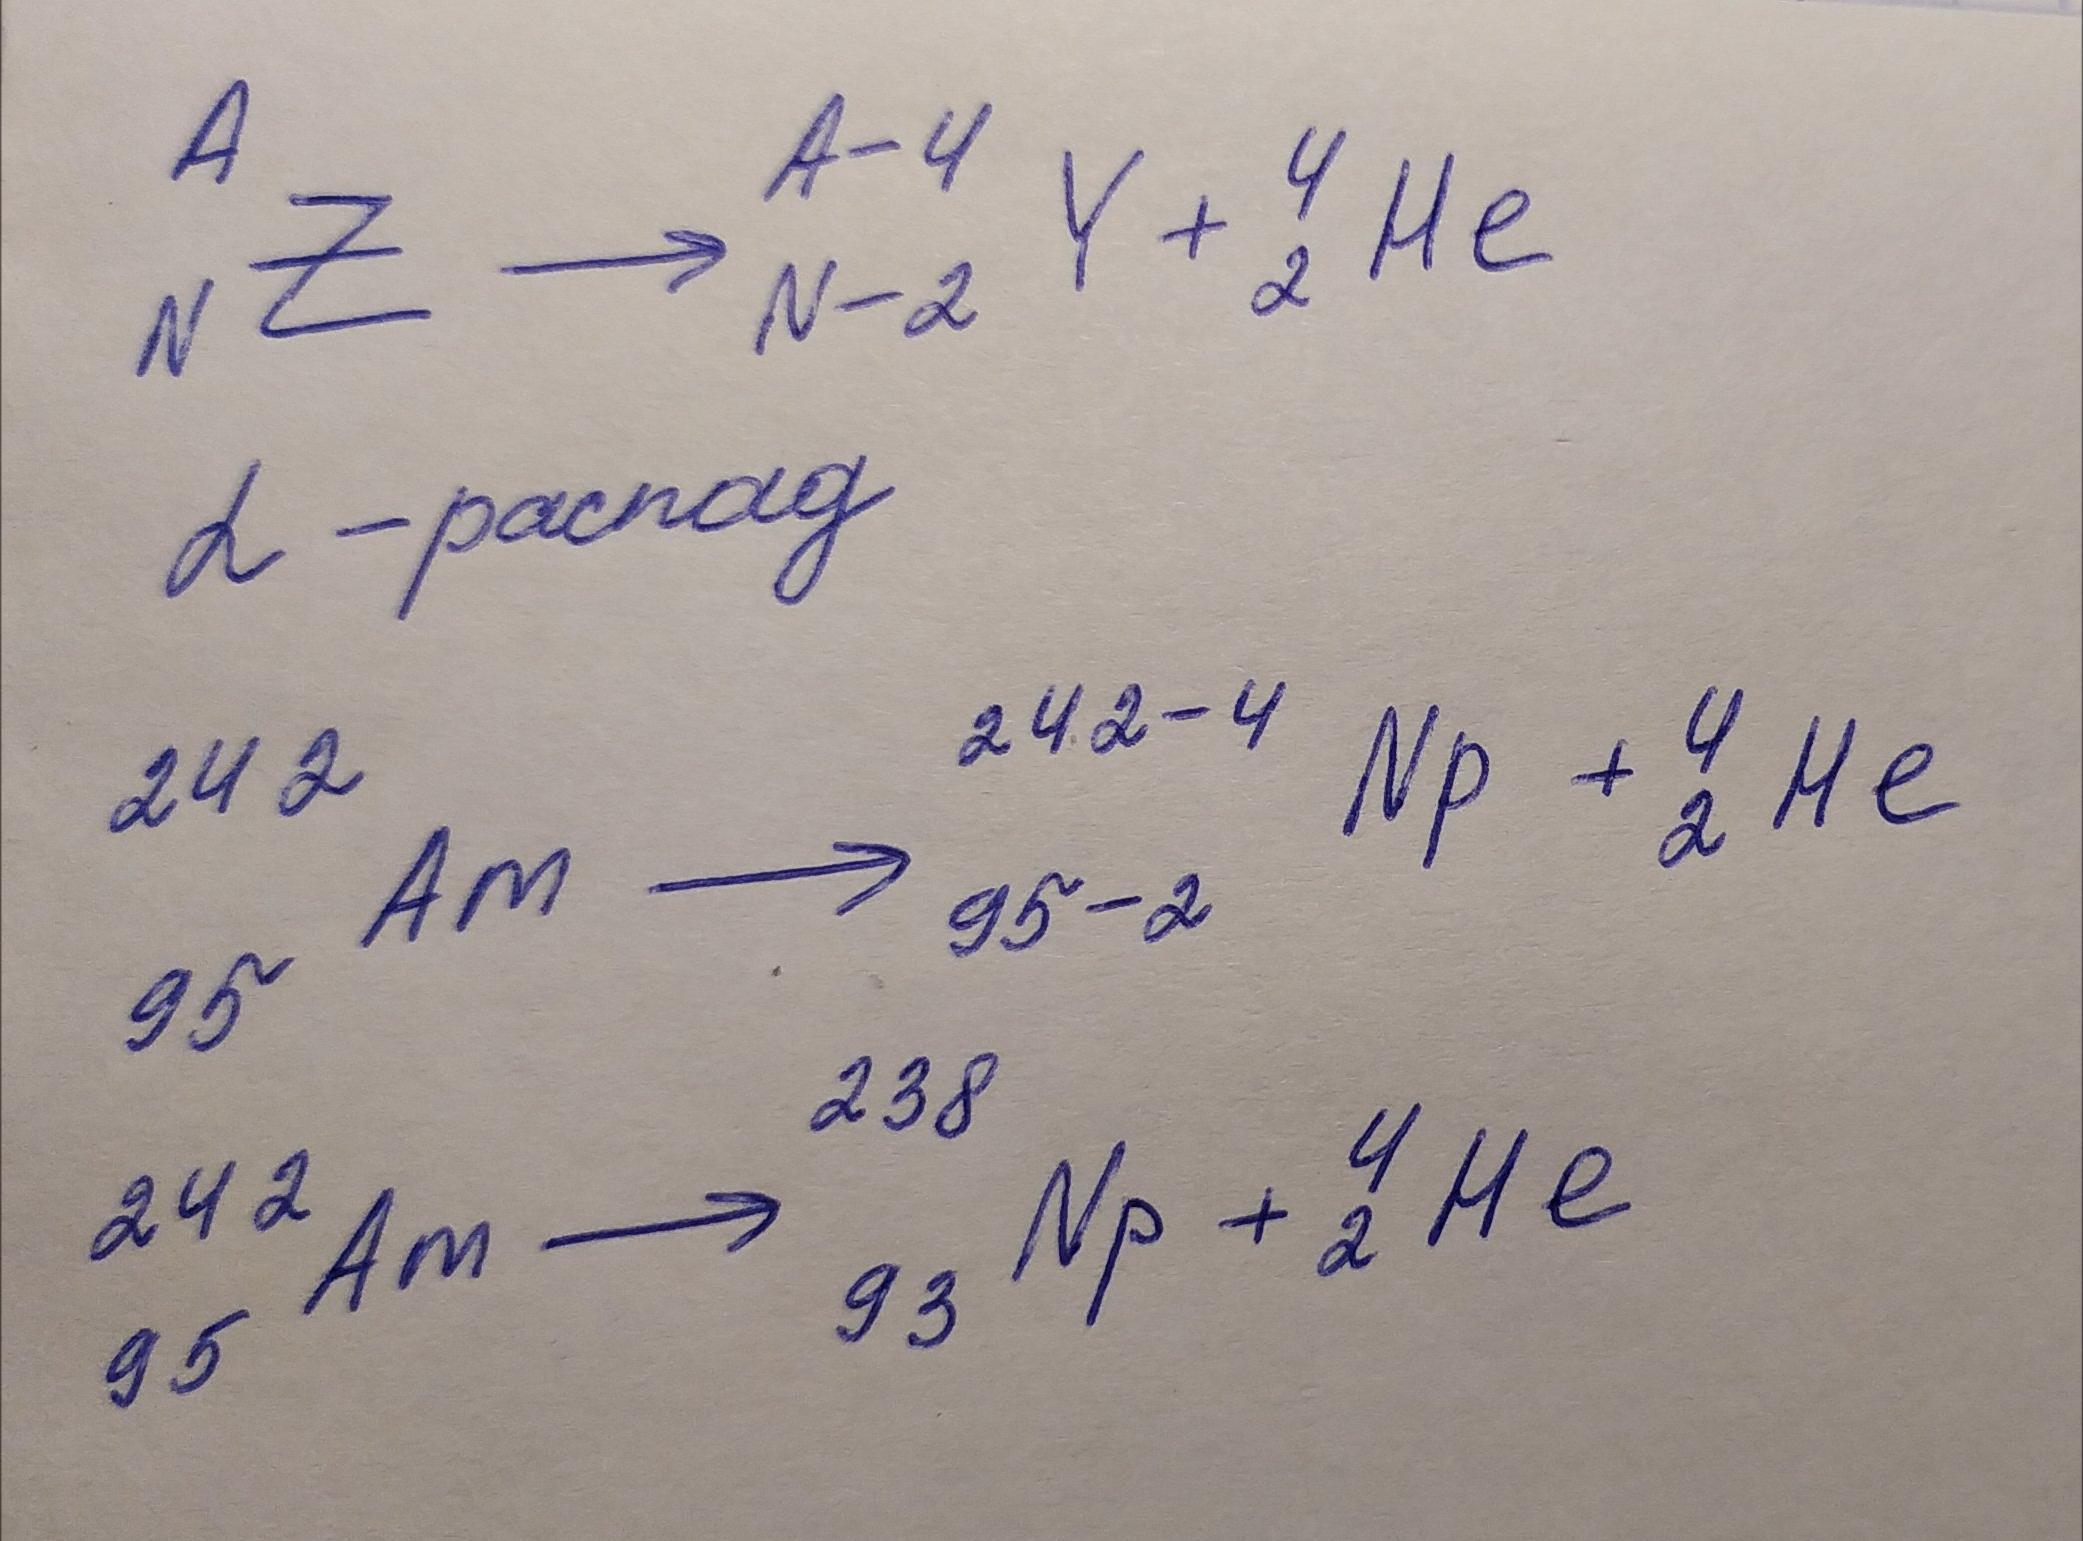 ᴬ_N Z → ᴬ⁻⁴_N₋₂ Y + ⁴₂He
α - распад
²⁴²₉₅Am → ²⁴²⁻⁴₉₅₋₂Np + ⁴₂He
²⁴²₉₅Am → ²³⁸₉₃Np + ⁴₂He